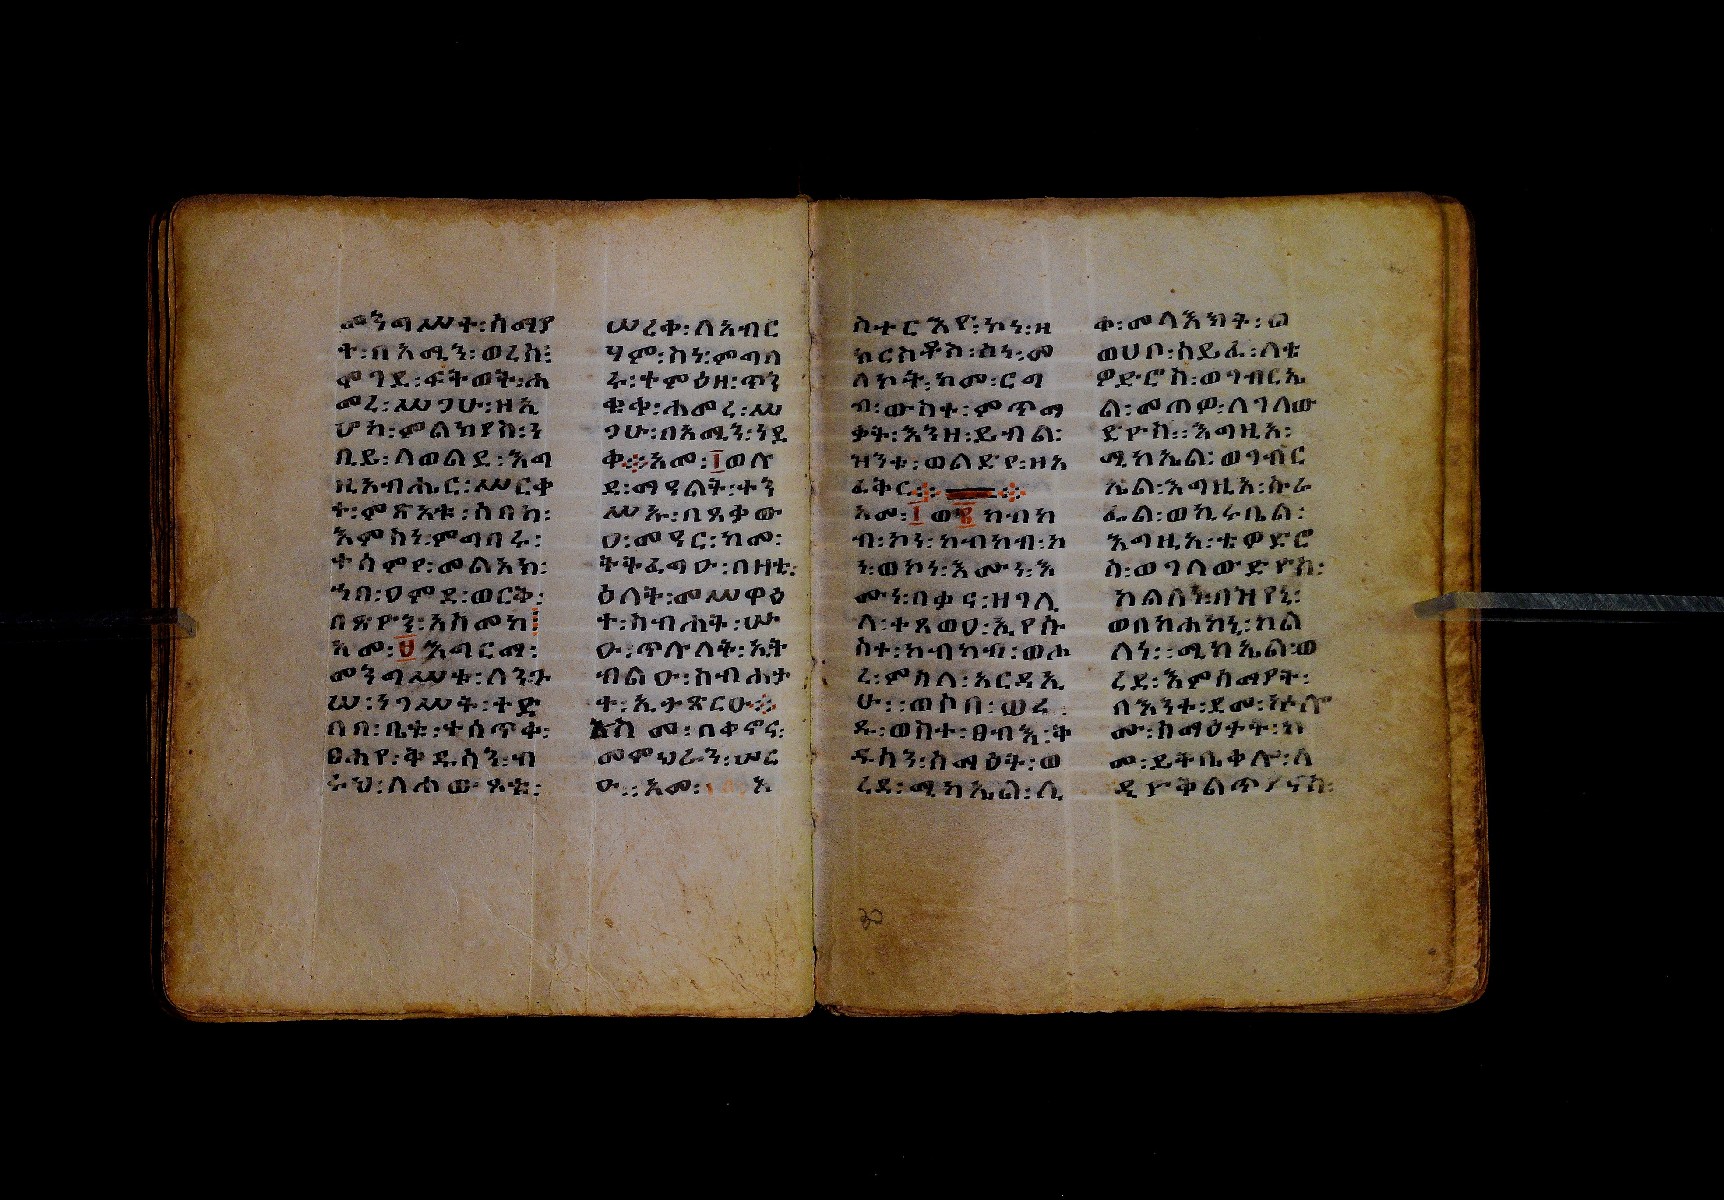 መንግሥት፡ሰማያ
ት፡በአሚን፡ወረሰ፡
ምገደ፡ፍትወት፡ሐ
መረ፡ሥጋሁ፡ዘኢ
ሆከ፡ምልክያስ፡ነ
ቢይ፡ለወልደ፡እግ
ዚአብሔር፡ሠርቀ
ት፡ምጽአቱ፡ሰበከ፡
እምከነ፡ምግበሩ፡
ተሰምየ፡መልአክ፡
ኀበ፡ዐምደ፡ወርቅ፡
በጽዮን፡አስመከ፡
አመ፡፱እግርማ፡
መንግሥቱ፡ለንጉ
ሠ፡ነገሥት፡ተድ
በበ፡ቤቱ፡ተሰጥቀ፡
ፀሐየ፡ቅዱሳን፡ብ
ሩህ፡ለሐውጾቱ፡
ሠረቀ፡ለአብር
ሃም፡ስነ፡ምግባ
ሩ፡ተምዕዘ፡ጥን
ቁቀ፡ሐመረ፡ሥ
ጋሁ፡በአሚን፡ነደ
ቀ፨አመ፡፲ወሉ
ደ፡ማኅልት፡ተን
ሥኡ፡በጸቃው
ዐ፡መኃር፡ከመ፡
ትትፈግዑ፡በዛቲ፡
ዕለት፡መሥዋዕ
ተ፡ስብሐት፡ሡ
ዑ፡ጥሉላት፡አት
ብልዑ፡ስብሐታ
ተ፡ኢታጽርዑ፨
እስመ፡በቀኖና፡
መምህራን፡ሡር
ዑ፡፡አመ፡ አ
ስተርእየ፡ኮነ፡ዘ
ክርስቶስ፡ስነ፡መ
ለኮት፡ከመ፡ርግ
ብ፡ውስተ፡ምጥማ
ቃት፡እንዘ፡ይብል፡
ዝንቱ፡ወልድየ፡ዘአ
ፈቅር፨
አመ፡፲ወ፪ከብካ
ብ፡ኮነ፡ከብካብ፡ኮ
ነ፡ወኮነ፡እሙነ፡እ
ሙነ፡በቃና፡ዘገሊ
ላ፡ተጸወዐ፡ኢየሱ
ስተ፡ከብካብ፡ወሖ
ረ፡ምስለ፡አርዳኢ
ሁ፡፡ወሶበ፡ሠረ
ዱ፡ወስተ፡ፀብእ፡ቅ
ዱሳን፡ሰማዕት፡ወ
ረደ፡ሚካኤል፡ሊ
ቀ፡መላእክት፡ል
ወሀቦ፡ሰይፈ፡ለቴ
ዎድሮስ፡ወገብርኤ
ል፡መጠዎ፡ለገላው
ዴዮስ፡፡እግዚእ፡
ሚካኤል፡ወገብር
ኤል፡እግዚእ፡ሱራ
ፌል፡ወኪሩቤል፡
እግዚእ፡ቴዎድሮ
ስ፡ወገላውድዮስ፡
ከልለነ፡በዝየኒ፡
ወበከሐከኒ፡ከል
ለነ፡፡ሚካኤል፡ወ
ረደ፡እምሰማያት፡
በእንተ፡ደመ፡ኵሎ
ሙ፡ሰማዕታት፡ከ
መ፡ይትቤቀሎ፡ለ
ዲዮቅልጥያኖስ፡